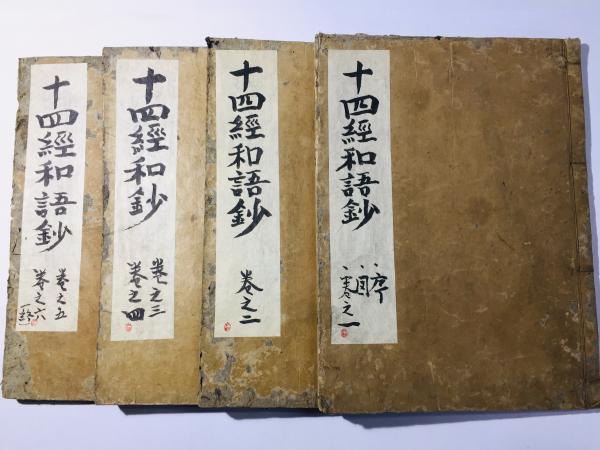 十四經和語鈔
序
目
卷之一
十四經和語鈔
卷之二
十四經和鈔
卷之三
卷之四
十四經和語鈔
卷之五
卷之六
終